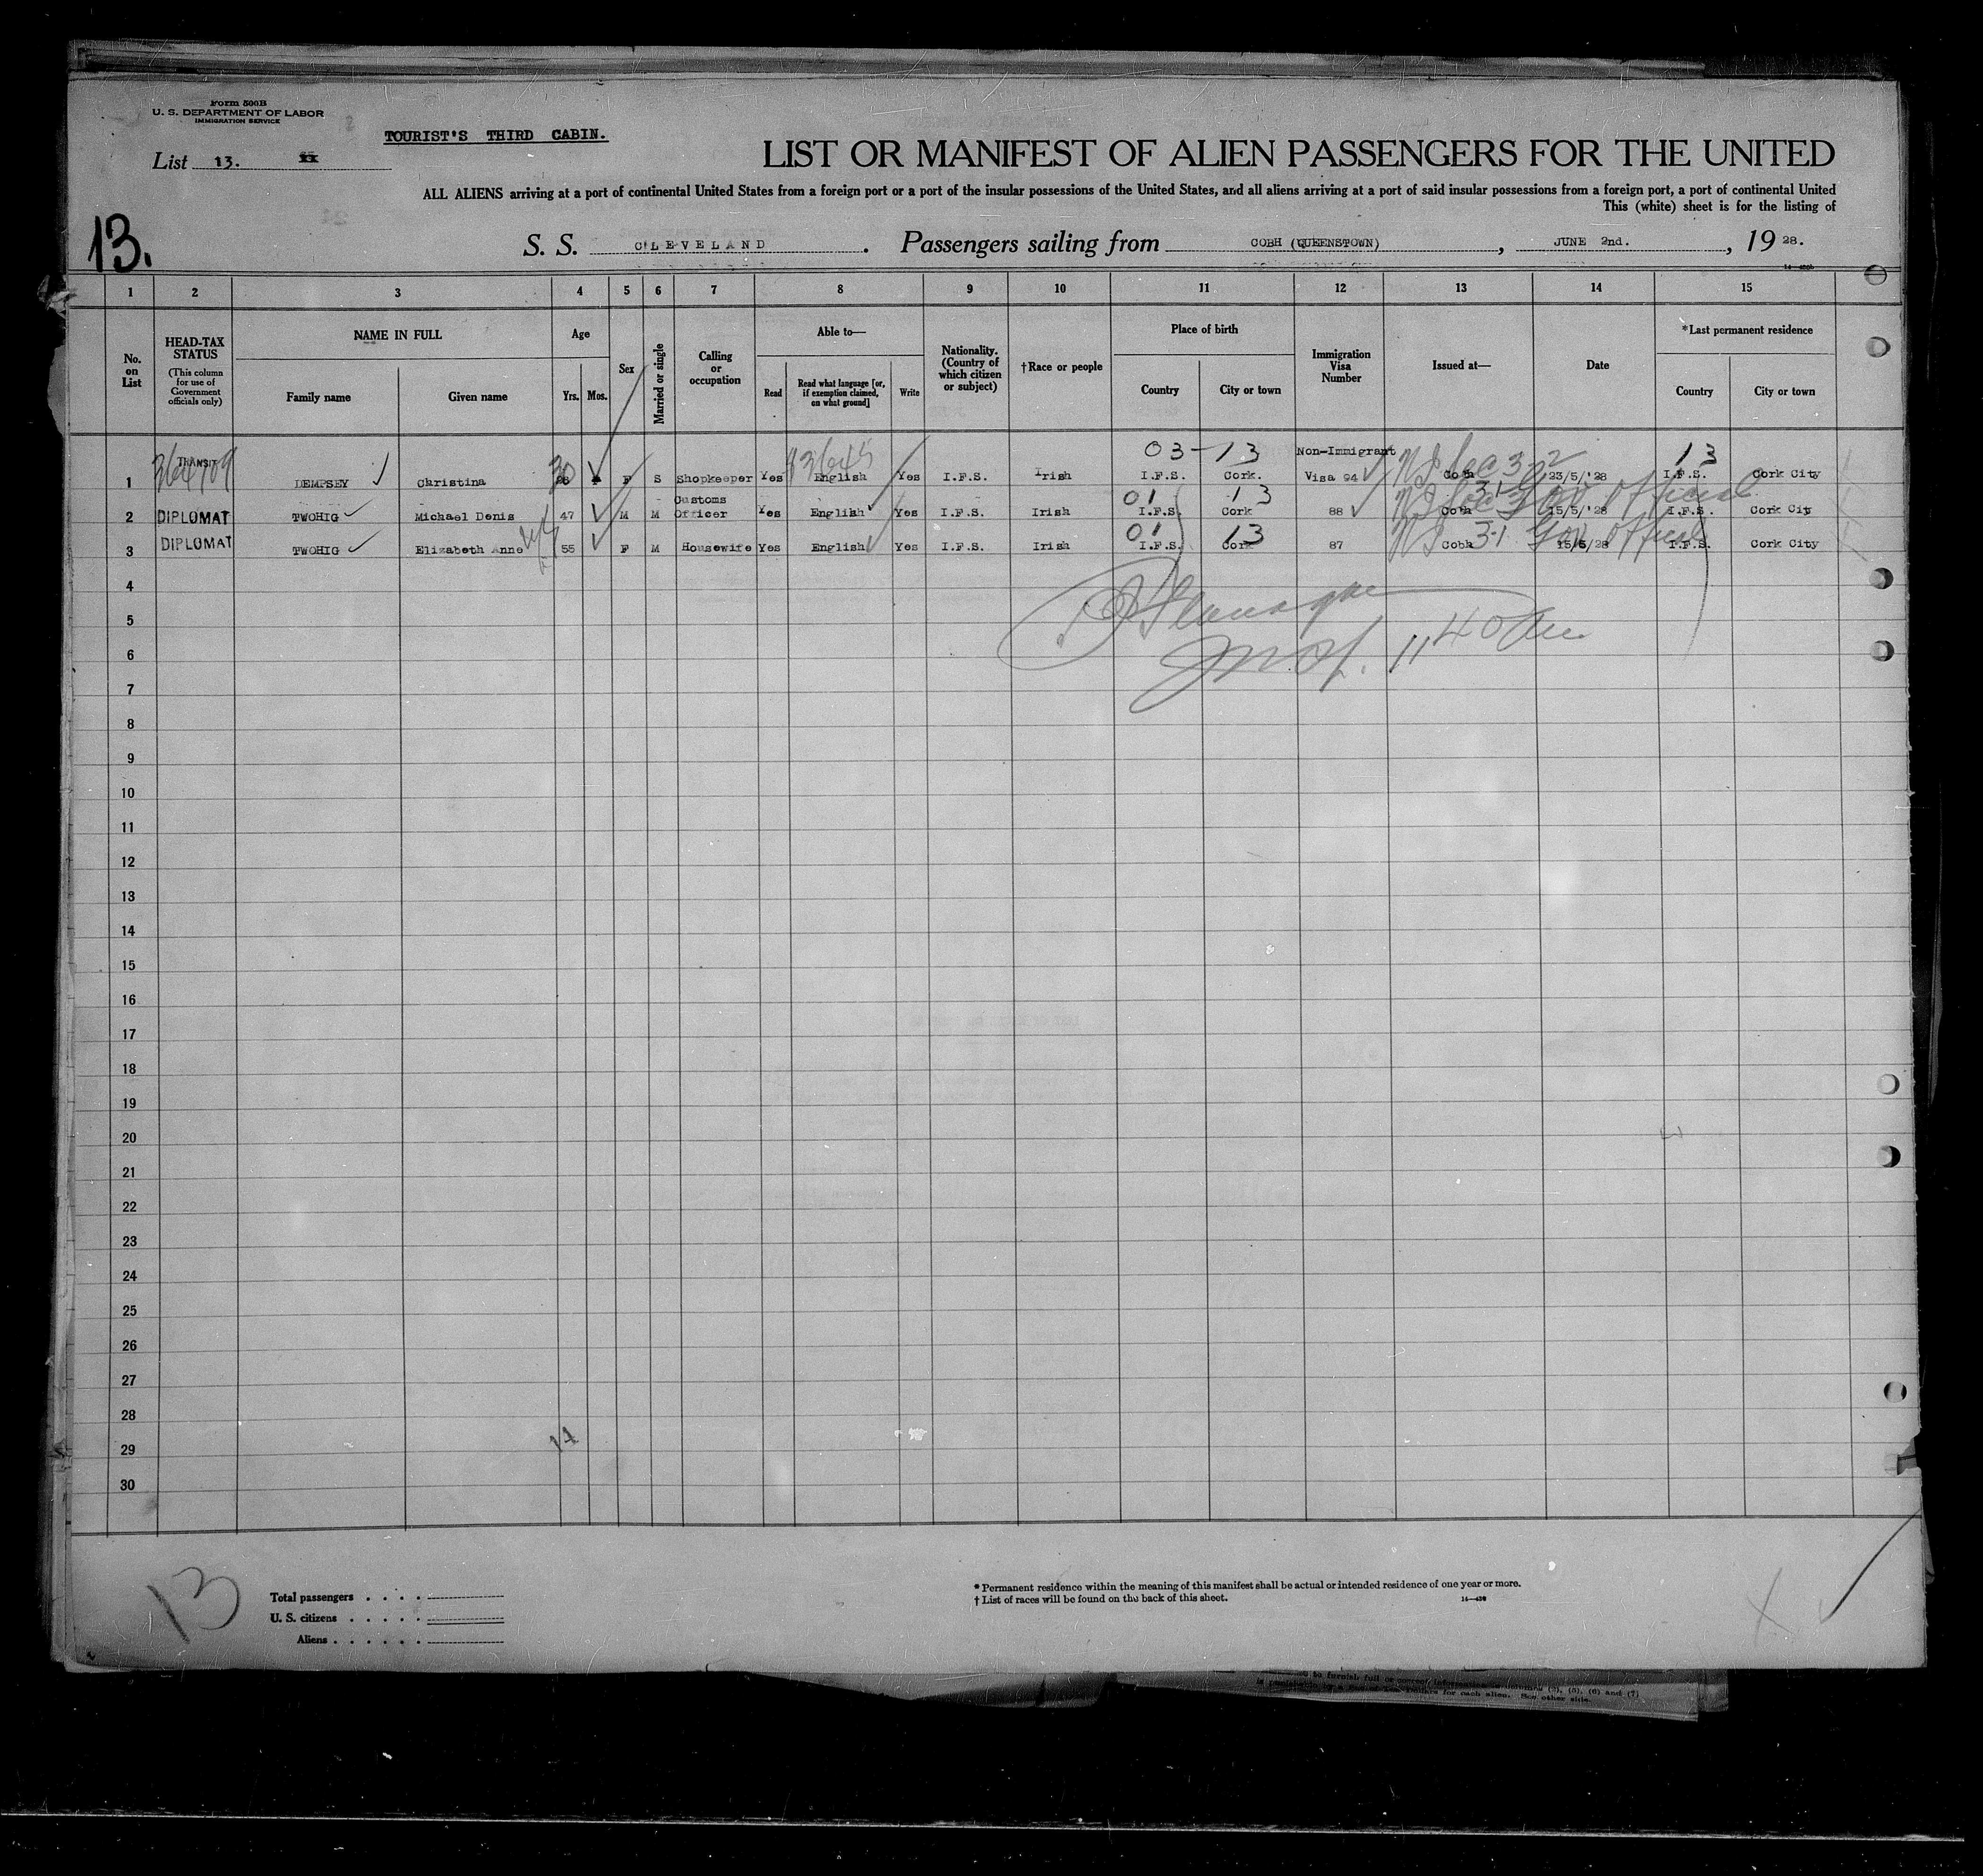 Form 500B
U. S. DEPARTMENT OF LABOR
IMMIGRATION SERVICE
TOURIST'S THIRD CABIN.
List 13.
LIST OR MANIFEST OF ALIEN PASSENGERS FOR THE UNITED
ALL ALIENS arriving at a port of continental United States from a foreign port or a port of the insular possessions of the United States, and all aliens arriving at a port of said insular possessions from a foreign port, a port of continental United
This (white) sheet is for the listing of
13.
S. S. CLEVELAND . Passengers sailing from COBH (QUEENSTOWN) , JUNE 2nd. , 19 28.
1 2 3 4 5 6 7 8 9 10 11 12 13 14 15
No. on List
HEAD-TAX STATUS (This column for use of Government officials only)
NAME IN FULL
Family name
Given name
Age
Yrs.
Mos.
Sex
Married or single
Calling or occupation
Able to—
Read
Read what language [or, if exemption claimed, on what ground]
Write
Nationality. (Country of which citizen or subject)
†Race or people
Place of birth
Country
City or town
Immigration Visa Number
Issued at—
Date
*Last permanent residence
Country
City or town
03-13 Non-Immigrant 13
1 TRANSIT DEMPSEY Christina 30 F S Shopkeeper Yes English Yes I.F.S. Irish I.F.S. Cork. Visa 94 Cobh 23/5/'28 I.F.S. Cork City
01 13
2 DIPLOMAT TWOHIG Michael Denis 47 M M Customs Officer Yes English Yes I.F.S. Irish I.F.S. Cork 88 Cobh 15/5/'28 I.F.S. Cork City
01 13 3-1 Gov official
3 DIPLOMAT TWOHIG Elizabeth Anne 55 F M Housewife Yes English Yes I.F.S. Irish I.F.S. Cork 87 Cobh 15/5/28 I.F.S. Cork City
4
5
6
11 40 am
7
8
9
10
11
12
13
14
15
16
17
18
19
20
21
22
23
24
25
26
27
28
29
30
13
Total passengers
U. S. citizens
Aliens
* Permanent residence within the meaning of this manifest shall be actual or intended residence of one year or more.
† List of races will be found on the back of this sheet.
14—430
to furnish full or correct information
(5), (6) and (7)
for each alien. See other side.